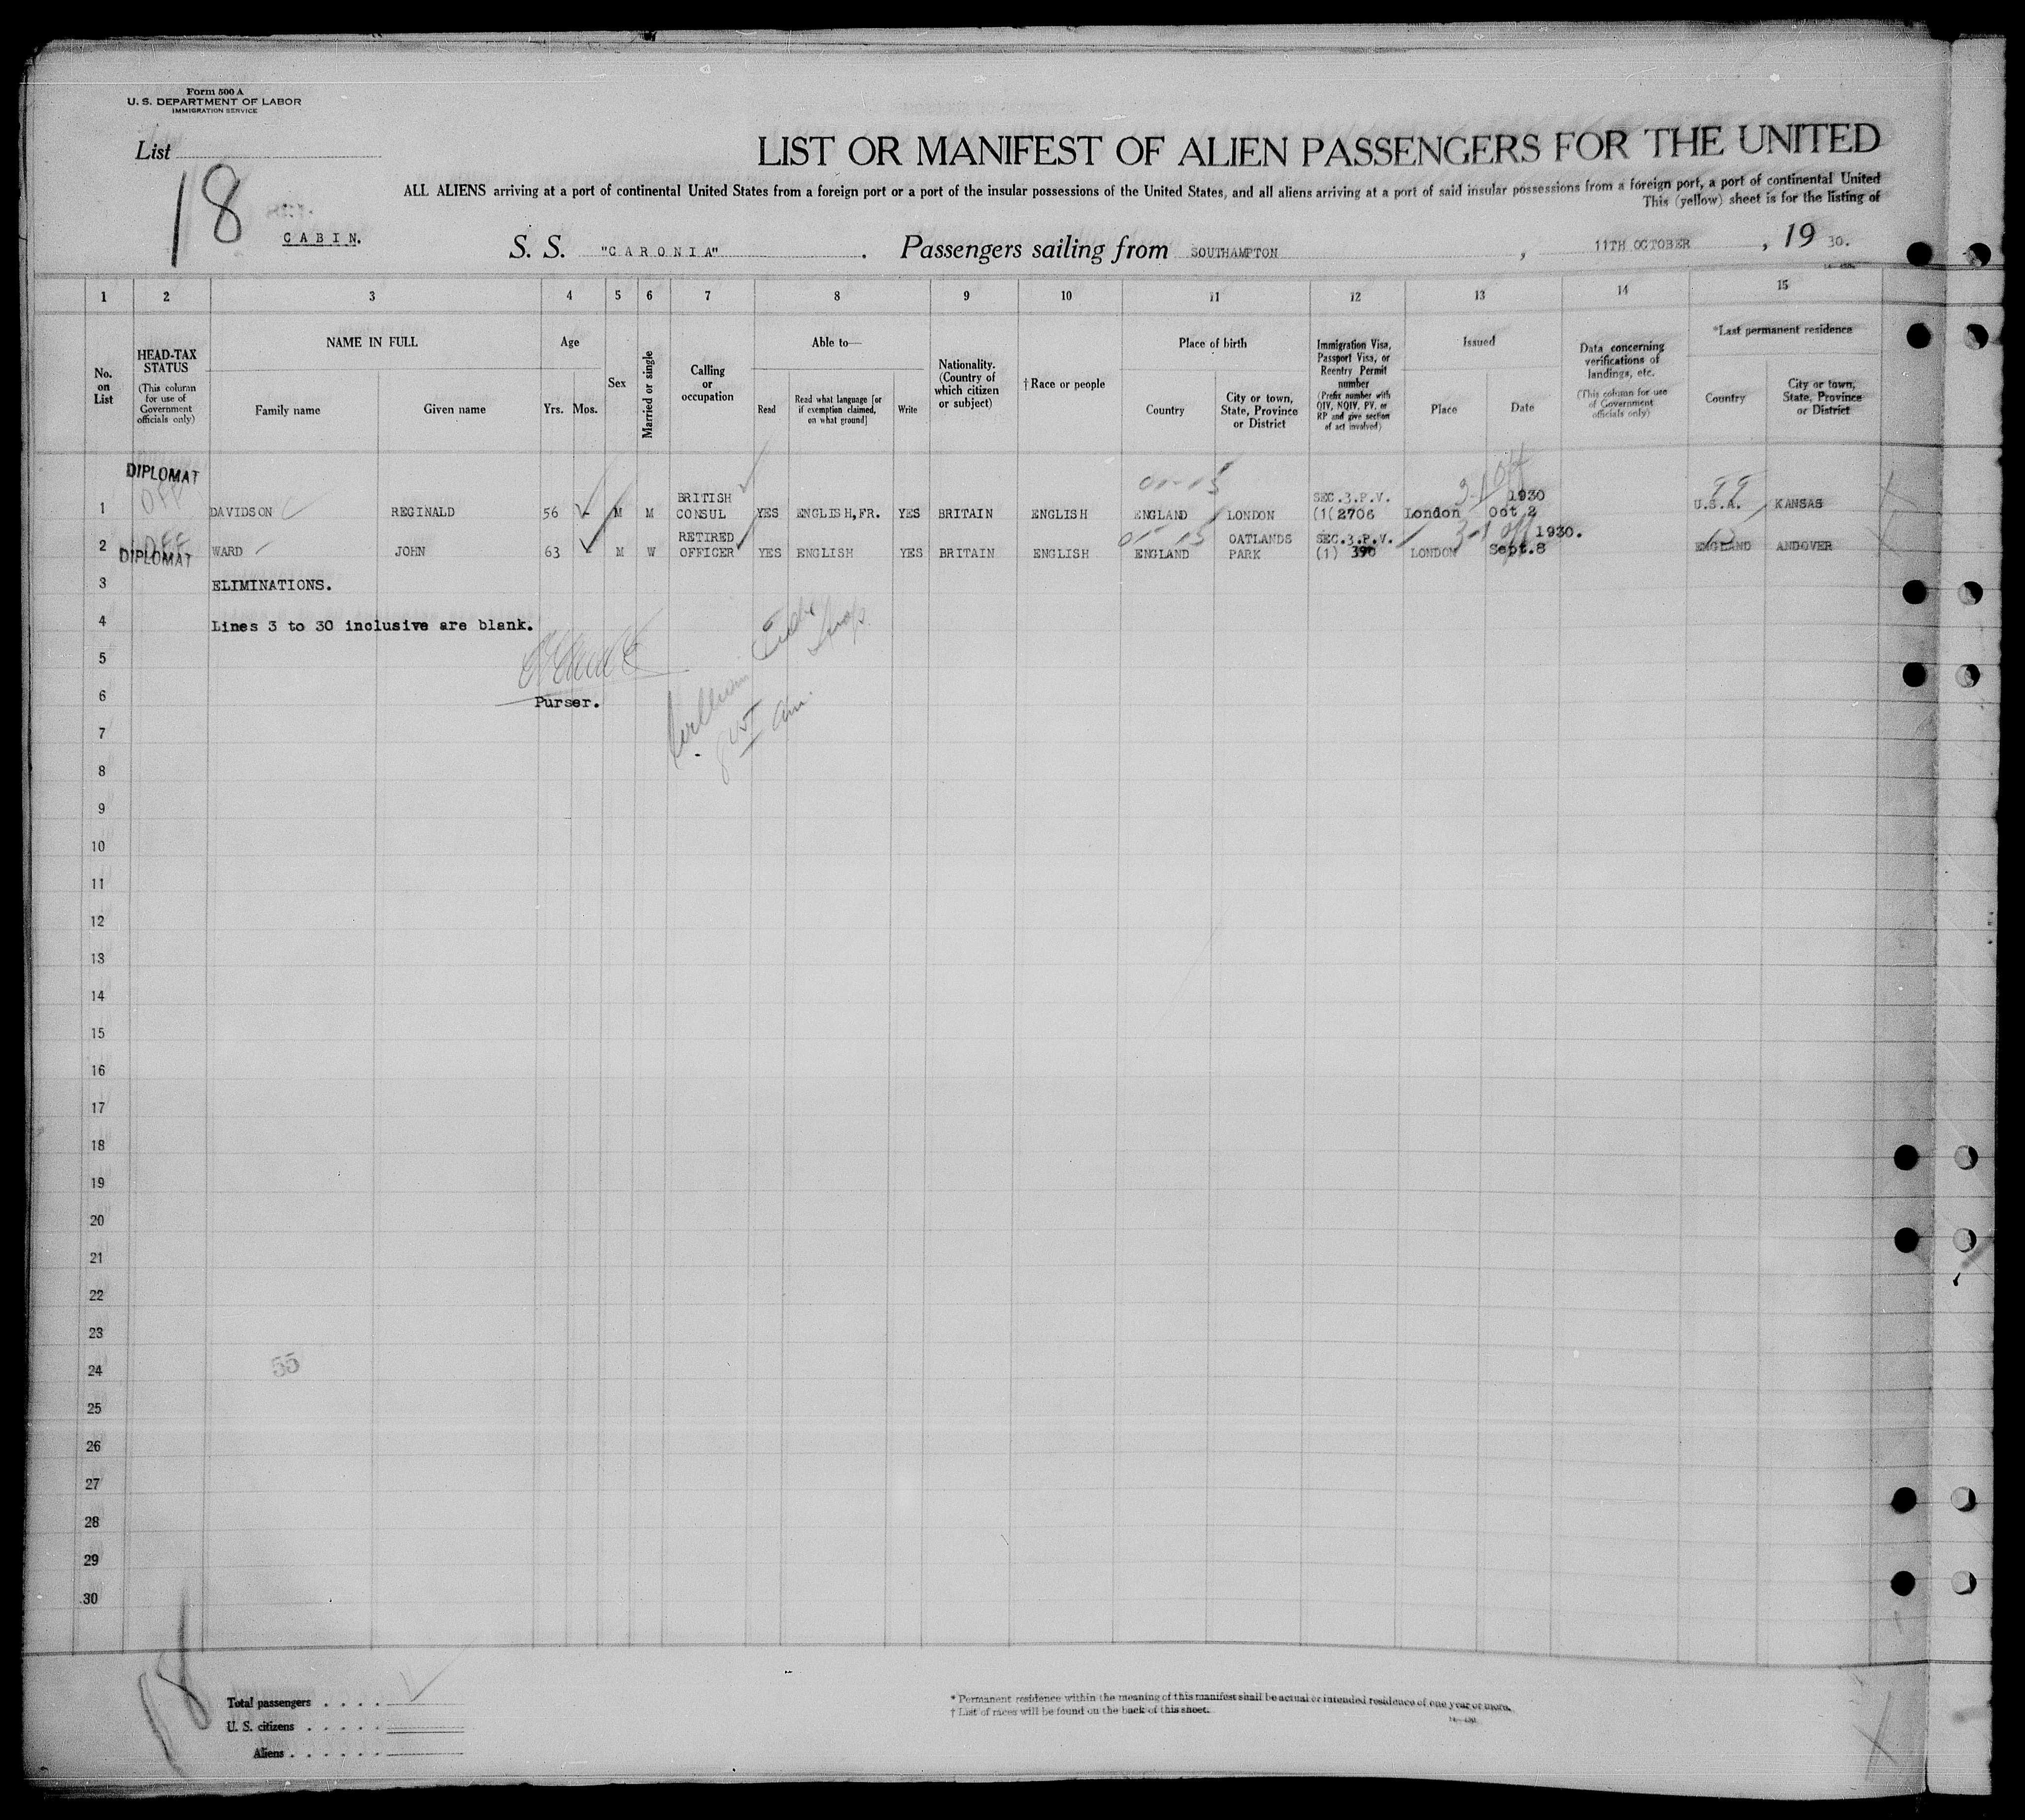 Form 500 A
U. S. DEPARTMENT OF LABOR
IMMIGRATION SERVICE
List
18
CABIN.
LIST OR MANIFEST OF ALIEN PASSENGERS FOR THE UNITED
ALL ALIENS arriving at a port of continental United States from a foreign port or a port of the insular possessions of the United States, and all aliens arriving at a port of said insular possessions from a foreign port, a port of continental United
This (yellow) sheet is for the listing of
S. S. "CARONIA". Passengers sailing from SOUTHAMPTON, 11TH OCTOBER, 1930.
1 2 3 4 5 6 7 8 9 10 11 12 13 14 15
No. on List
HEAD-TAX STATUS
(This column for use of Government officials only)
NAME IN FULL
Family name
Given name
Age
Yrs. Mos.
Sex
Married or single
Calling or occupation
Able to—
Read
Read what language [or if exemption claimed, on what ground]
Write
Nationality. (Country of which citizen or subject)
†Race or people
Place of birth
Country
City or town, State, Province or District
Immigration Visa, Passport Visa, or Reentry Permit number
(Prefix number with QIV, NQIV, PV, or RP and give section of act involved)
Issued
Place
Date
Data concerning verifications of landings, etc.
(This column for use of Government officials only)
*Last permanent residence
Country
City or town, State, Province or District
DIPLOMAT
OFF
1 DAVIDSON REGINALD 56 M M BRITISH CONSUL YES ENGLISH,FR. YES BRITAIN ENGLISH ENGLAND LONDON SEC.3.P.V. (1(2706 London Oct 2 1930 U.S.A. KANSAS
OFF
2 DIPLOMAT WARD JOHN 63 M W RETIRED OFFICER YES ENGLISH YES BRITAIN ENGLISH ENGLAND OATLANDS PARK SEC.3.P.V. (1) 390 LONDON Sept.8 1930. ENGLAND ANDOVER
3 ELIMINATIONS.
4 Lines 3 to 30 inclusive are blank.
5
6 Purser.
7
8
9
10
11
12
13
14
15
16
17
18
19
20
21
22
23
24 55
25
26
27
28
29
30
18
Total passengers . . . .
U. S. citizens . . . . .
Aliens . . . . . .
* Permanent residence within the meaning of this manifest shall be actual or intended residence of one year or more.
† List of races will be found on the back of this sheet.